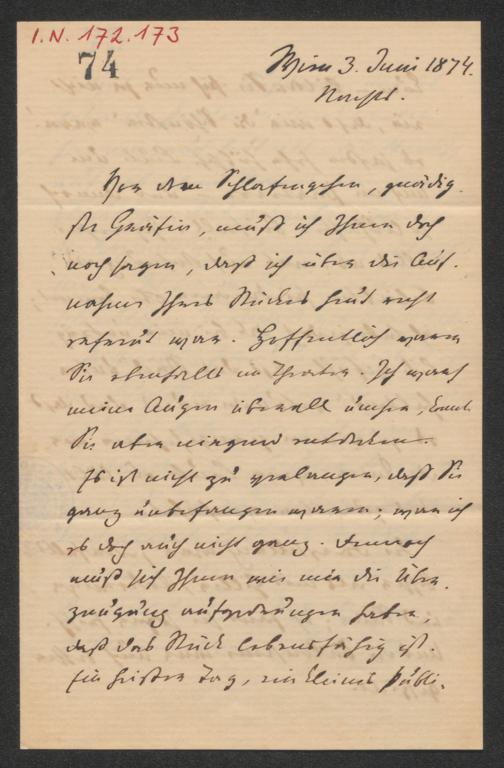 I.N. 172.173
74
Wien 3. Juni 1874.
Nachts.
Vor dem Schlafengehen, gnädig-
ste Gräfin, muß ich Ihnen doch
noch sagen, daß ich über die Auf-
nahme Ihres Stückes heut recht
erfreut war. Hoffentlich waren
Sie ebenfalls im Theater. Ich warf
meine Augen überall umher, konnte
Sie aber nirgend entdecken.
Es ist nicht zu verlangen, daß Sie
ganz unbefangen waren; war ich
es doch auch nicht ganz. Dennoch
muß sich Ihnen wie mir die Über-
zeugung aufgedrungen haben,
daß das Stück lebensfähig ist.
Ein heißer Tag, ein kleines Publi-